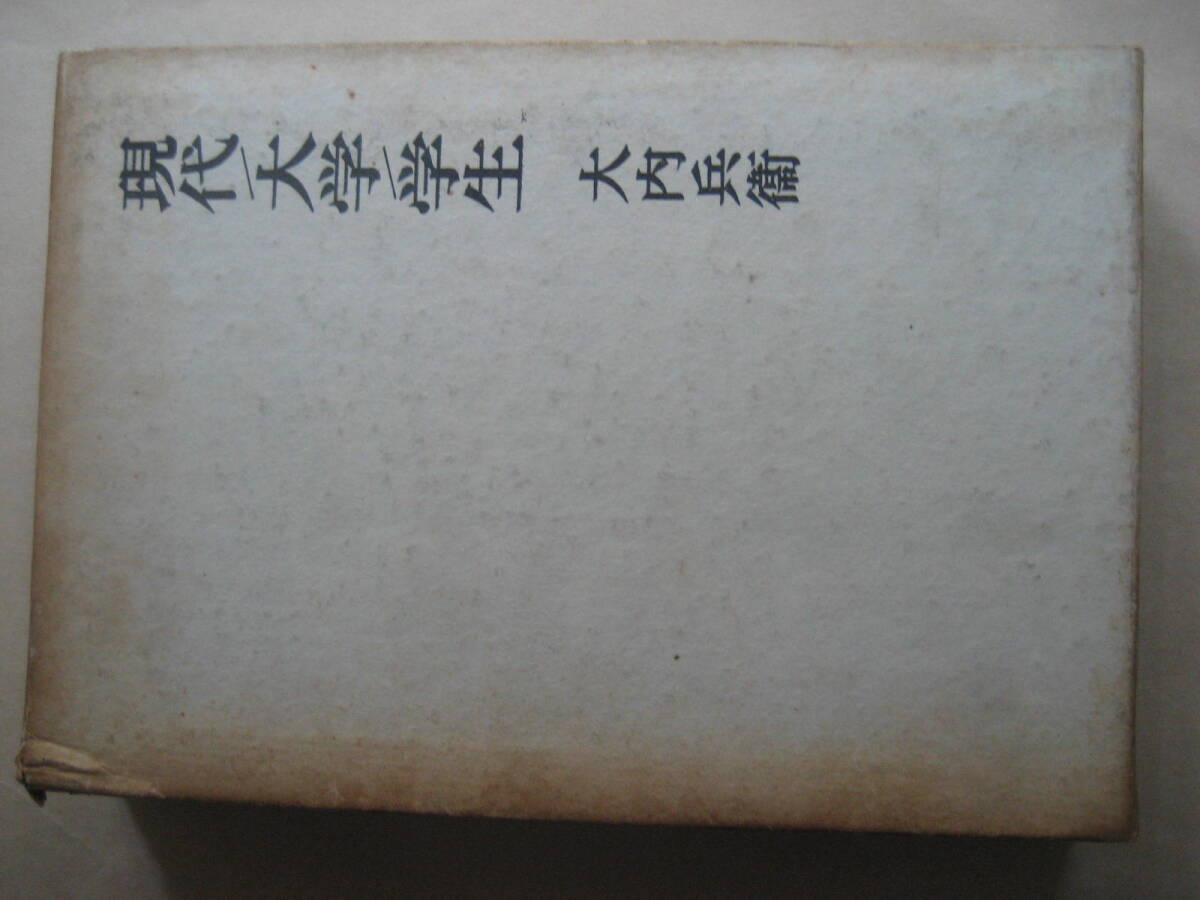 現代/大学/学生 大内兵衞